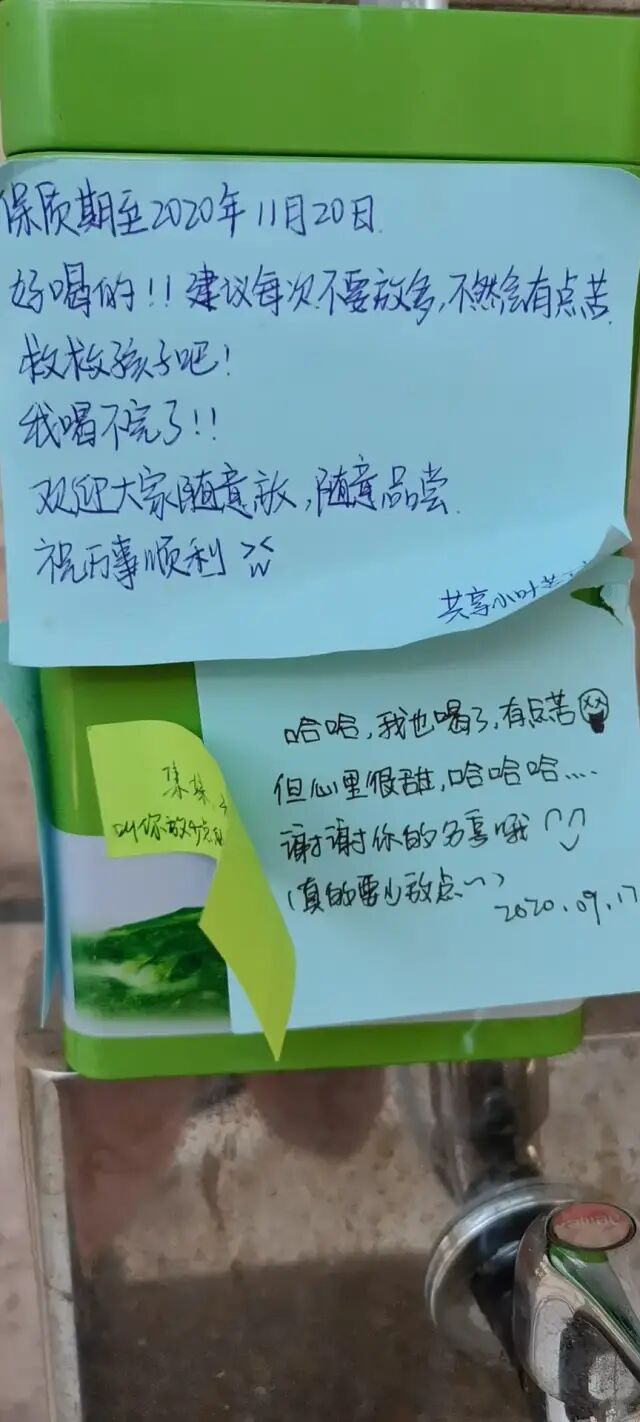 保质期至2020年11月20日.
好喝的!! 建议每次不要放多,不然会有点苦.
救救孩子吧!
我喝不完了!!
欢迎大家随意放,随意品尝.
祝万事顺利 ><
w
共享小叶苦
哈哈,我也喝了,有点苦
但心里很甜,哈哈哈....
谢谢你的分享哦
(真的要少放点~)
2020.09.17
叫你放